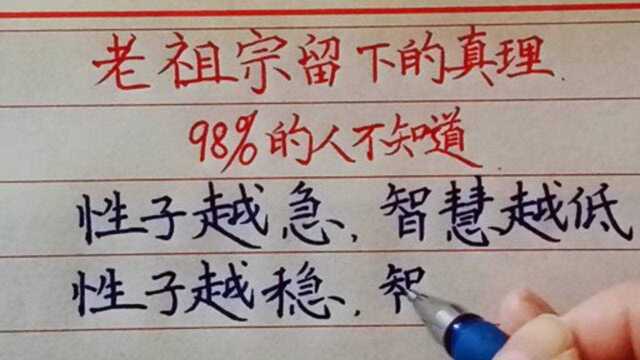 老祖宗留下的真理
98%的人不知道
性子越急,智慧越低
性子越稳,